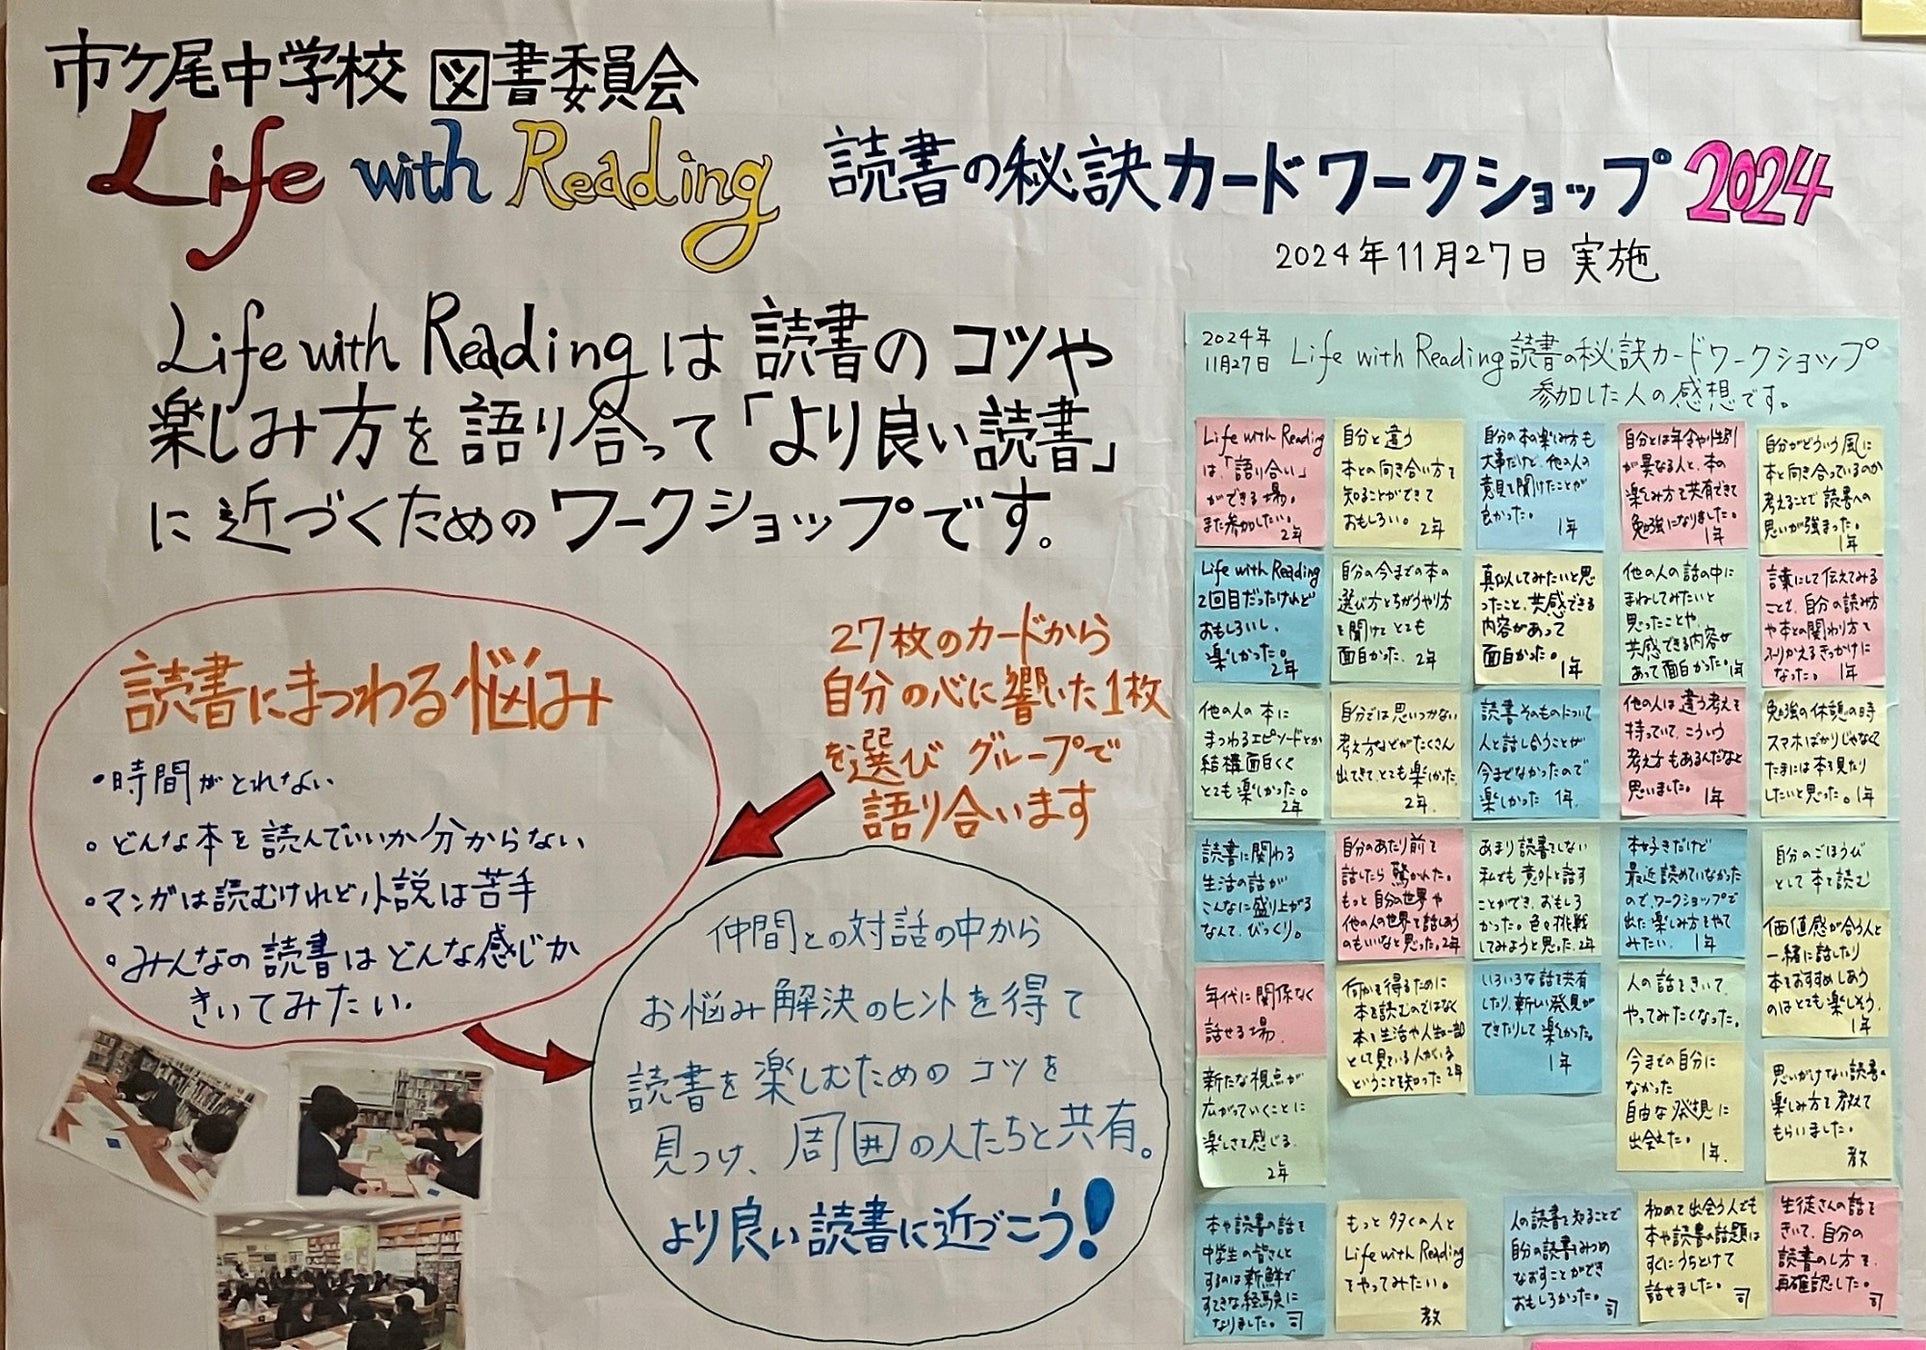 市ケ尾中学校 図書委員会
Life with Reading 読書の秘訣カードワークショップ 2024
2024年11月27日 実施
Life with Reading は 読書の コツや
楽しみ方を語り合って「より良い読書」
に近づくためのワークショップです。
読書にまつわる悩み
・時間がとれない
。どんな本を読んでいいか分からない
・マンガは読むけれど小説は苦手
。みんなの読書はどんな感じか
きいてみたい.
27枚のカードから
自分の心に響いた1枚
を選び グループで
語り合います
仲間との対話の中から
お悩み解決のヒントを得て
読書を楽しむためのコツを
見つけ、周囲の人たちと共有。
より良い読書に近づこう!
2024年
11月27日 Life with Reading 読書の秘訣カードワークショップ
参加した人の感想です。
Life with Reading
は、「語り合い」
ができる場。
また参加したい。
2年
自分と違う
本との向き合い方を
知ることができて
おもしろい。 2年
自分の本の楽しみ方も
大事だけど、他の人の
意見を聞けたことが
良かった。 1年
自分とは年令や性別
が異なる人と、本の
楽しみ方を共有できて
勉強になりました。
1年
自分がどういう風に
本と向き合っているのか
考えることで読書への
思いが強まった。
1年
Life with Reading
2回目だったけれど
おもしろいし、
楽しかった。
2年
自分の今までの本の
選び方とちがうやり方
を聞けてとても
面白かった. 2年
真似してみたいと思
ったこと、共感できる
内容があって
面白かった。
1年
他の人の話の中に
まねしてみたいと
思ったことや
共感できる内容が
あって面白かった。1年
言葉にして伝えてみる
ことで、自分の読み方
や本との関わり方を
ふりかえるきっかけに
なった。 1年
他の人の本に
まつわるエピソードとか
結構面白くて
とても楽しかった。
2年
自分では思いつかない
考え方などがたくさん
出てきて、とても楽しかった
2年.
読書そのものについて
人と話し合うことが
今までなかったので
楽しかった 1年.
他の人は違う考えを
持っていて、こういう
考え方もあるんだなと
思いました。 1年
勉強の休憩の時
スマホばかりじゃなくて
たまには本を見たり
したいと思った。1年
読書に関わる
生活の話が
こんなに盛り上がる
なんて、びっくり。
自分のあたり前を
話したら驚かれた。
もっと自分の世界や
他の人の世界を話しあう
のもいいなと思った。2年
あまり読書をしない
私でも意外と話す
ことができ、おもしろ
かった。色々挑戦
してみようと思った 2年
本好きだけど
最近読めていなかった
ので、ワークショップで
出た楽しみ方をやって
みたい. 1年
自分のごほうび
として本を読む
年代に関係なく
話せる場.
何かを得るために
本を読むのではなく
本を生活や人生の一部
として見ている人がいる
ということを知った 2年
いろいろな話を共有
したり、新しい発見が
できたりして楽しかった。
1年
人の話をきいて、
やってみたくなった。
価値感が合う人と
一緒に話したり
本をおすすめしあう
のはとても楽しそう.
1年
新たな視点が
広がっていくことに
楽しさを感じる.
2年
今までの自分に
なかった
自由な発想に
出会えた。
1年.
思いがけない読書の
楽しみ方を教えて
もらいました。
教
本や読書の話を
中学生の皆さんと
するのは新鮮で
すてきな経験に
なりました。 司
もっと多くの人と
Life with Reading
をやってみたい。
教
人の読書を知ることで
自分の読書をみつめ
なおすことができ
おもしろかった。 司
初めて出会う人でも
本や読書の話題は
すぐにうちとけて
話せました。 司
生徒さんの話を
きいて、自分の
読書のし方を
再確認した。
司